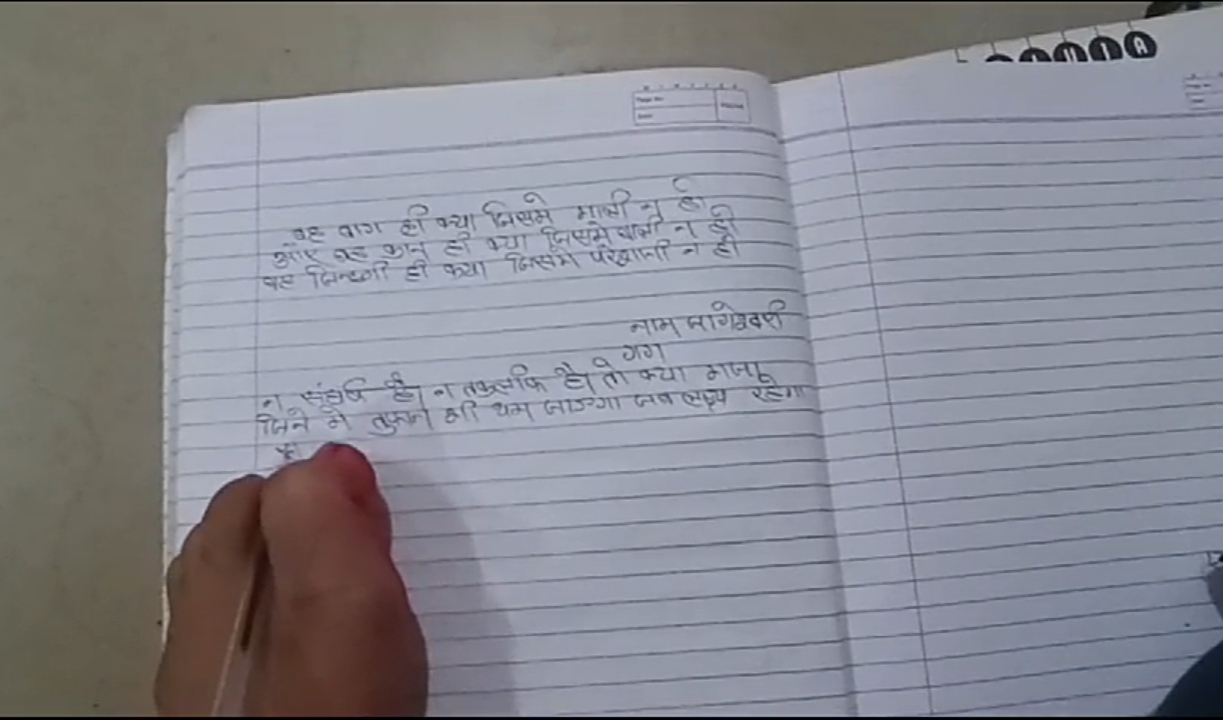 वह बाग ही क्या जिसमे माली न हो
और वह कान ही क्या जिसमे बाली न हो
वह जिन्दगी ही क्या जिसमे परेशानी न हो
नाम जागेश्वरी
न संघर्ष है न तकलीफ है तो क्या मजा
जिने मे तुफान भी थम जाएगा जब लक्ष्य रहेगा